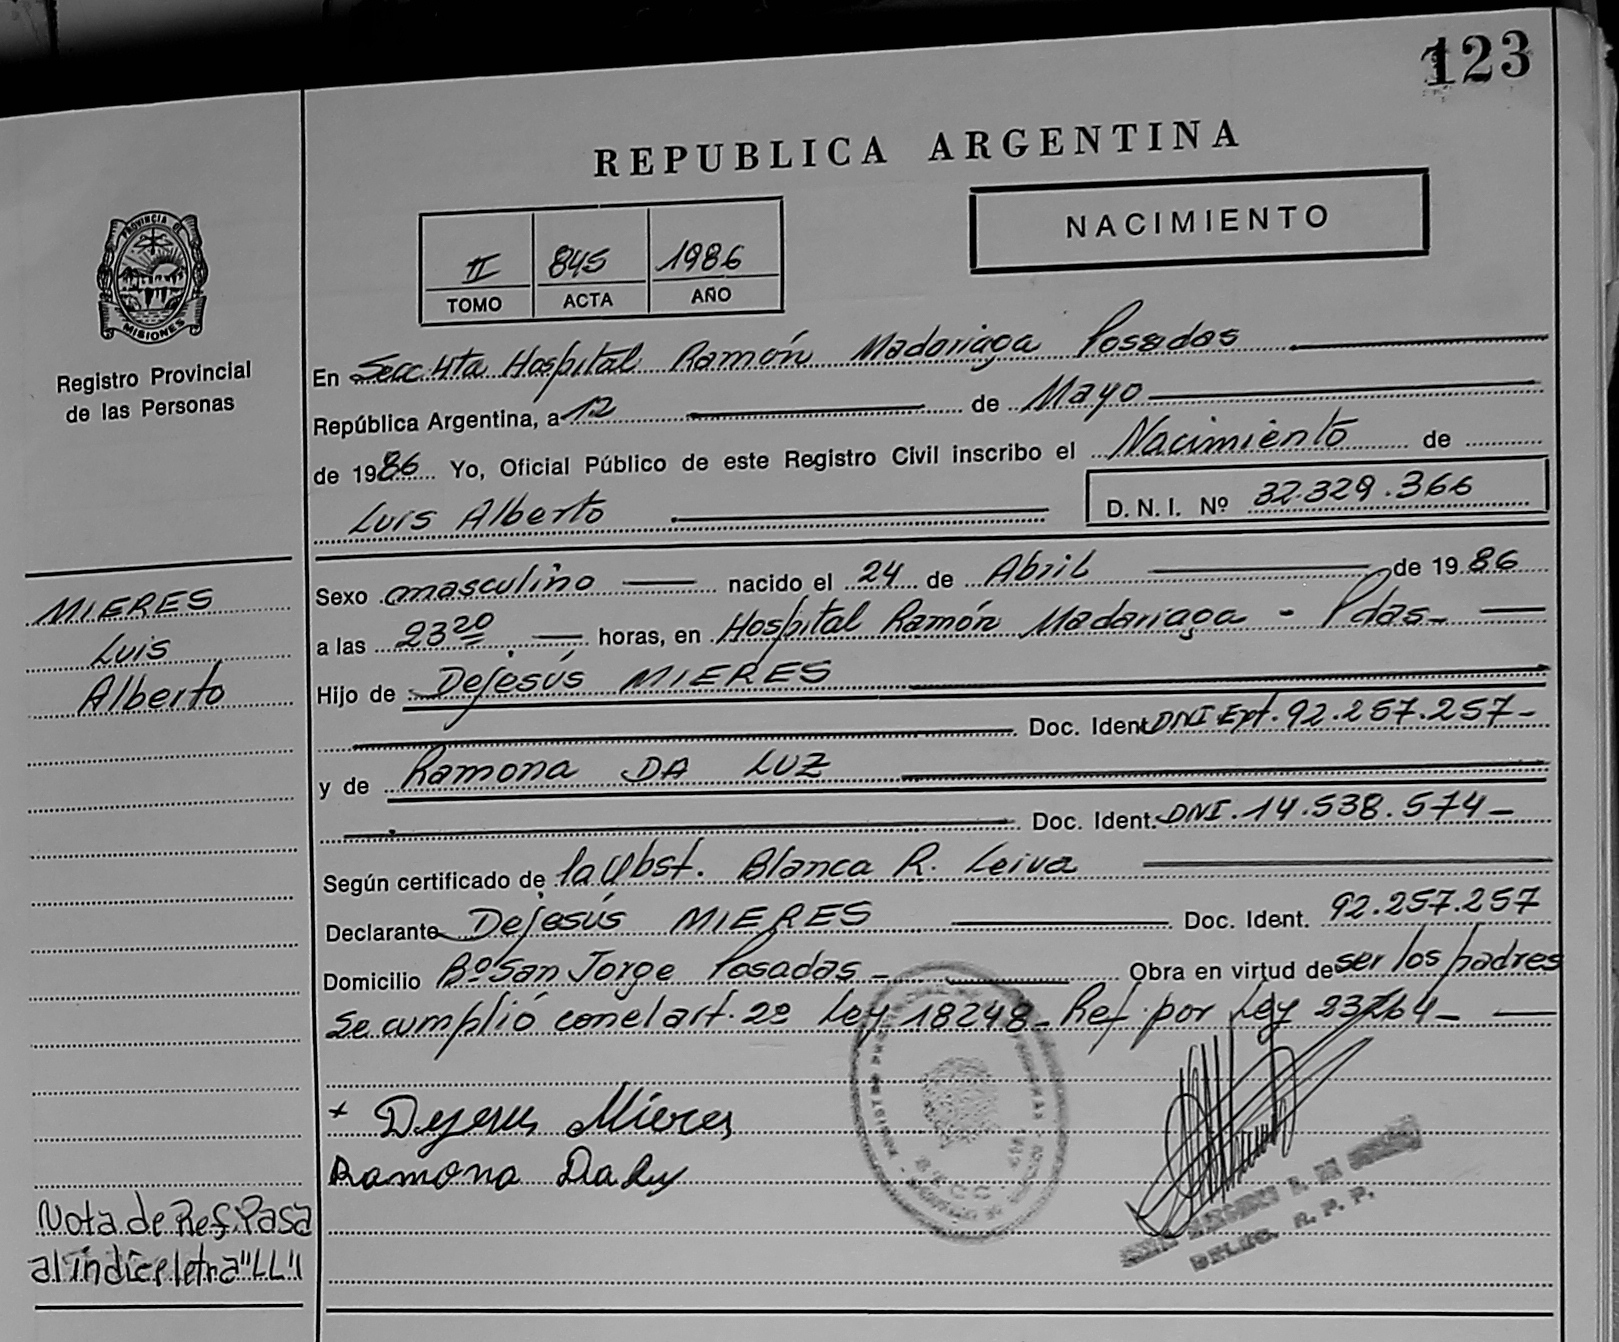 123
REPUBLICA ARGENTINA
NACIMIENTO
II 845 1986
TOMO ACTA AÑO
PROVINCIA DE
MISIONES
Registro Provincial
de las Personas
En Secc. 4ta. Hospital Ramón Madariaga Posadas
República Argentina, a 12 de Mayo
de 1986 Yo, Oficial Público de este Registro Civil inscribo el Nacimiento de
Luis Alberto D. N. I. Nº 32.329.366
MIERES
Luis
Alberto
Sexo masculino nacido el 24 de Abril de 1986
a las 23 20 horas, en Hospital Ramón Madariaga - Pdas.-
Hijo de Dejesús MIERES
Doc. Ident. DNI Ext. 92.257.257-
y de Ramona DA LUZ
Doc. Ident. DNI. 14.538.574-
Según certificado de la Obst. Blanca R. Leiva
Declarante Dejesús MIERES Doc. Ident. 92.257.257
Domicilio Bº San Jorge Posadas- Obra en virtud de ser los padres
Se cumplió con el art. 2º Ley 18248- Ref. por Ley 23264-
+ Dejesus Mieres
Ramona Daluz
SECC.
DELEG. R. P. P.
Nota de Ref. Pasa
al índice letra "LL"